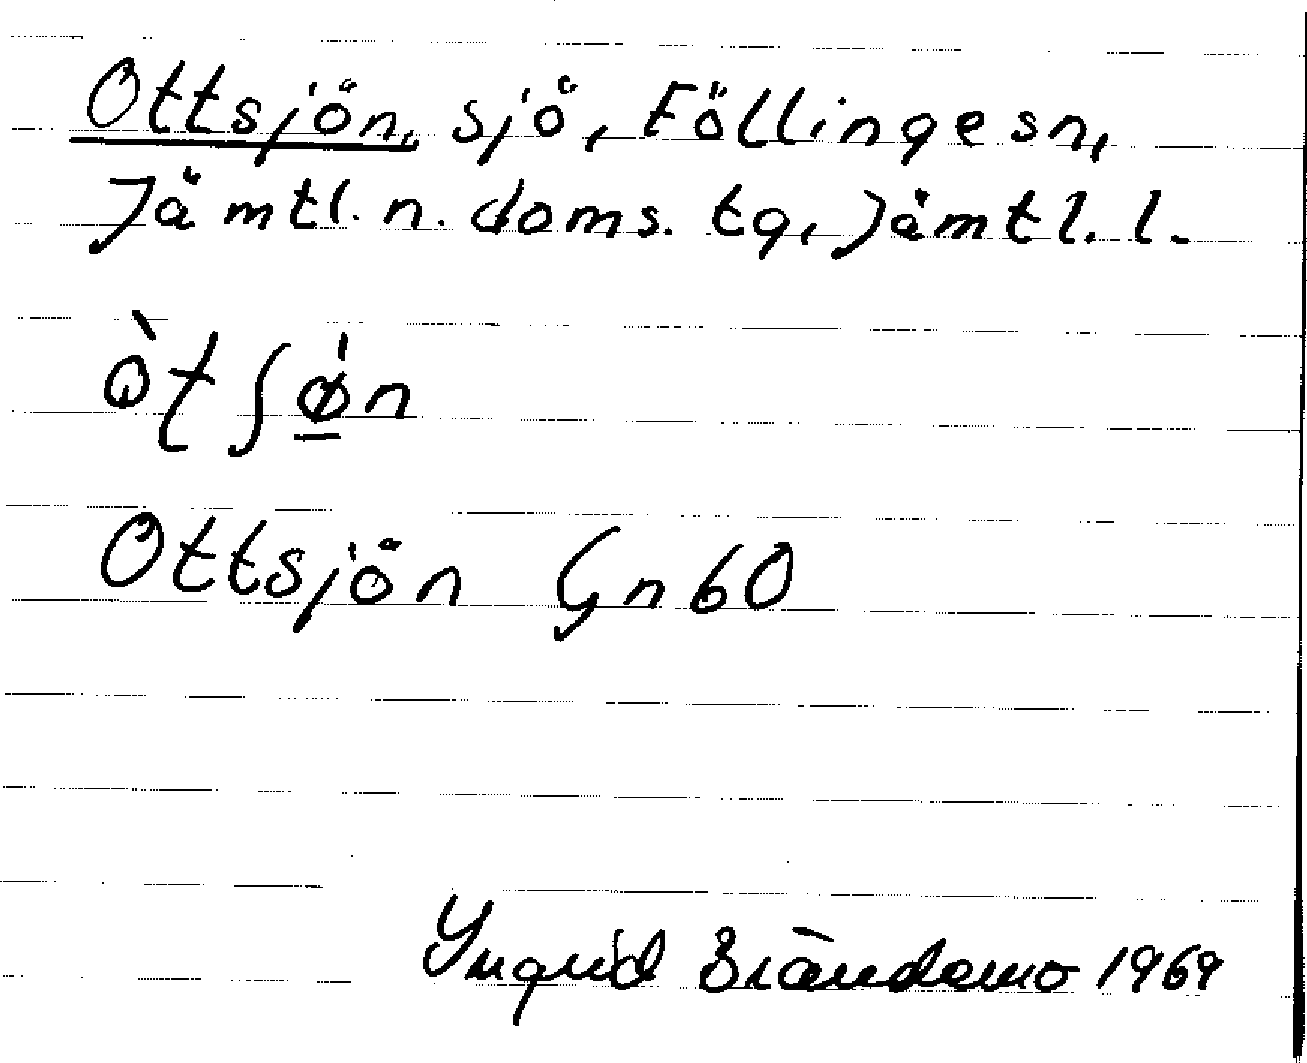 Ottsjön, sjö, Föllinge sn,
Jämtl. n. doms. tg, Jämtl. l.
òtʃø̲̍n
Ottsjön Gn 60
Yngvid Brändemo 1969